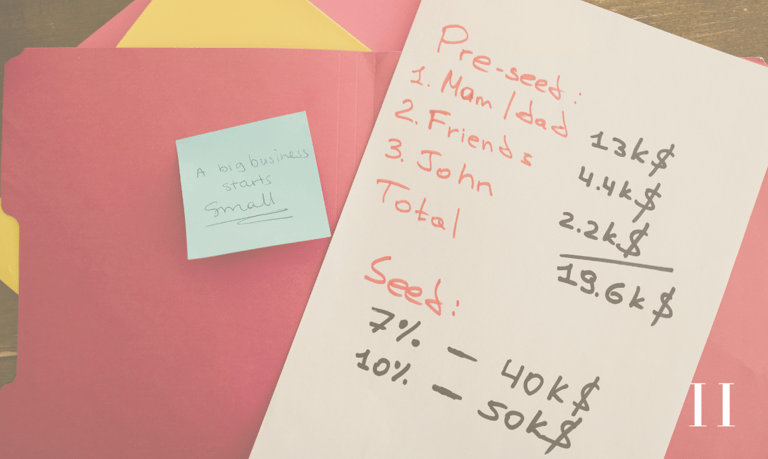 A big business
starts
Small
Pre-seed:
1. Mam/dad 13k$
2. Friends 4.4k$
3. John 2.2k$
Total 19.6k$
Seed:
7% - 40k$
10% - 50k$
II